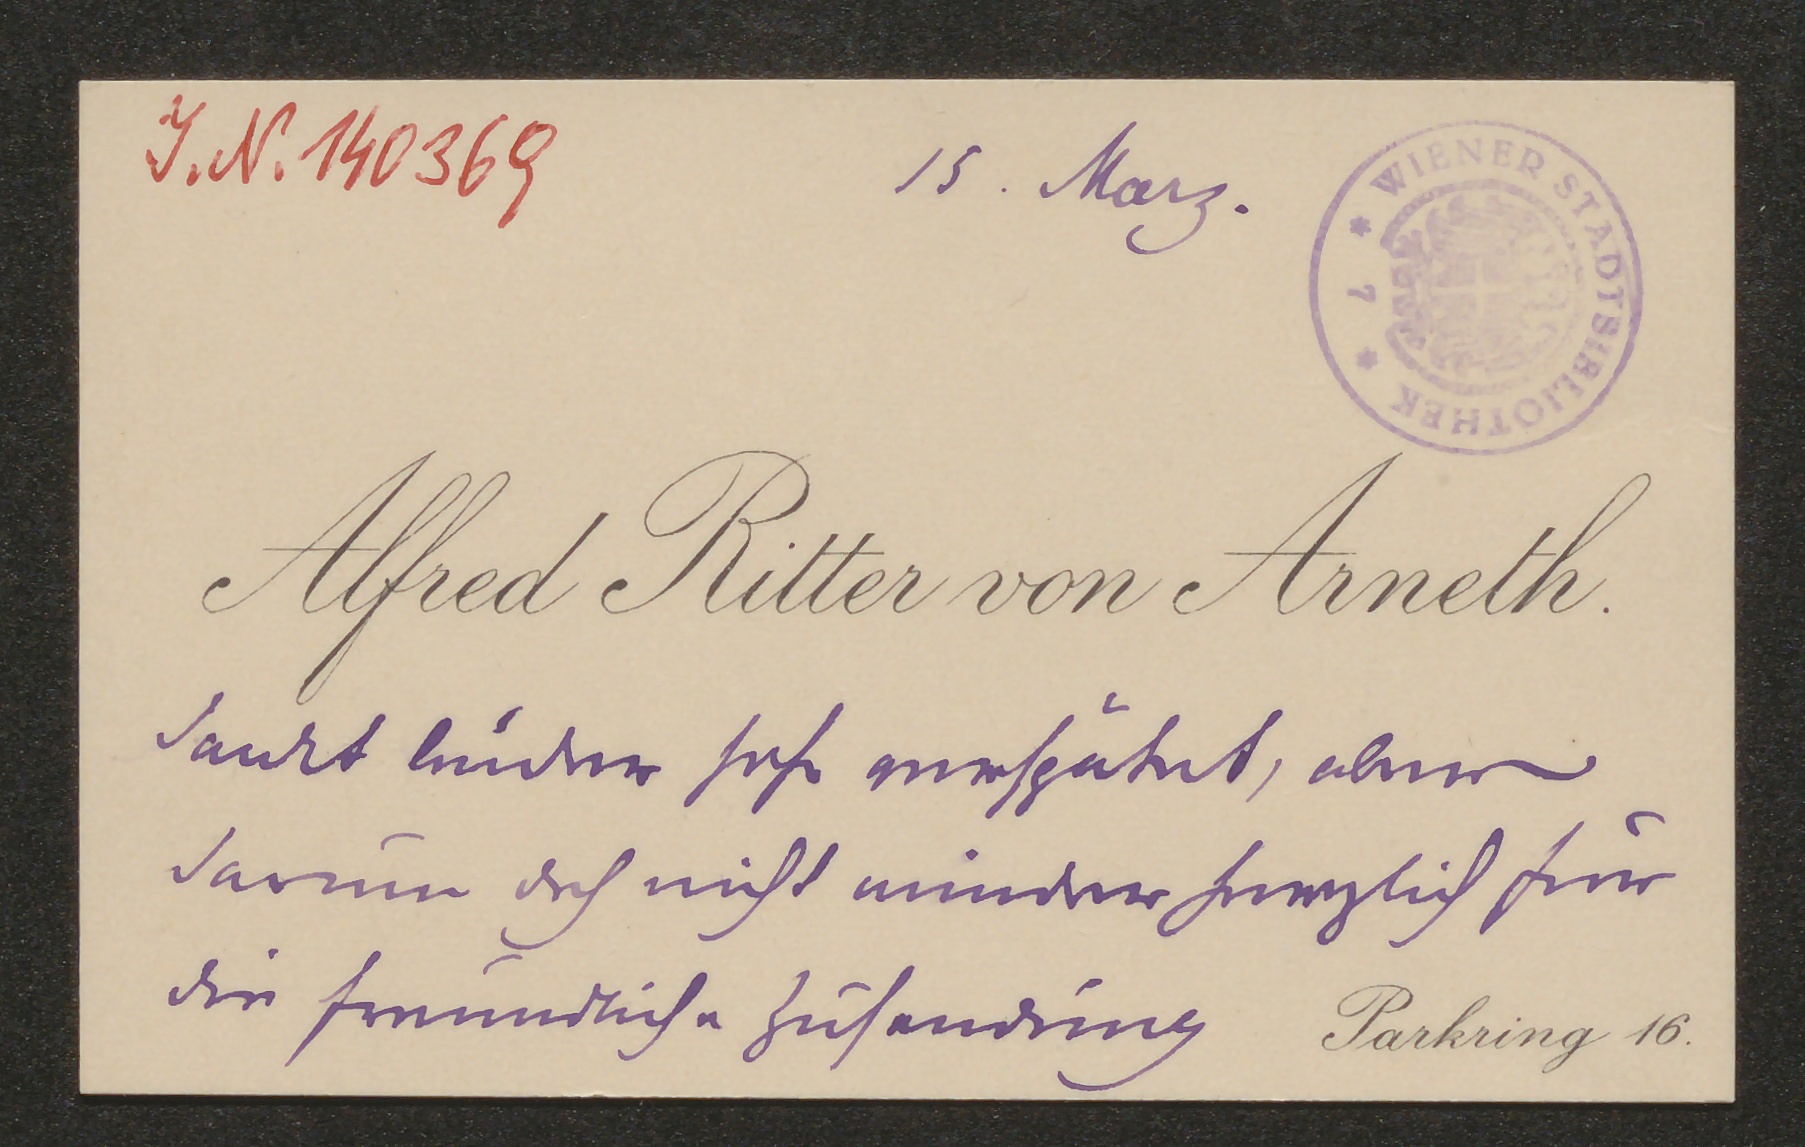 I.N. 140369
15. Marz.
* WIENER STADTSBIBLIOTHEK * 7
Alfred Ritter von Arneth.
dankt leider sehr verspätet, aber
darum doch nicht minder herzlich für
die freundliche Zusendung
Parkring 16.